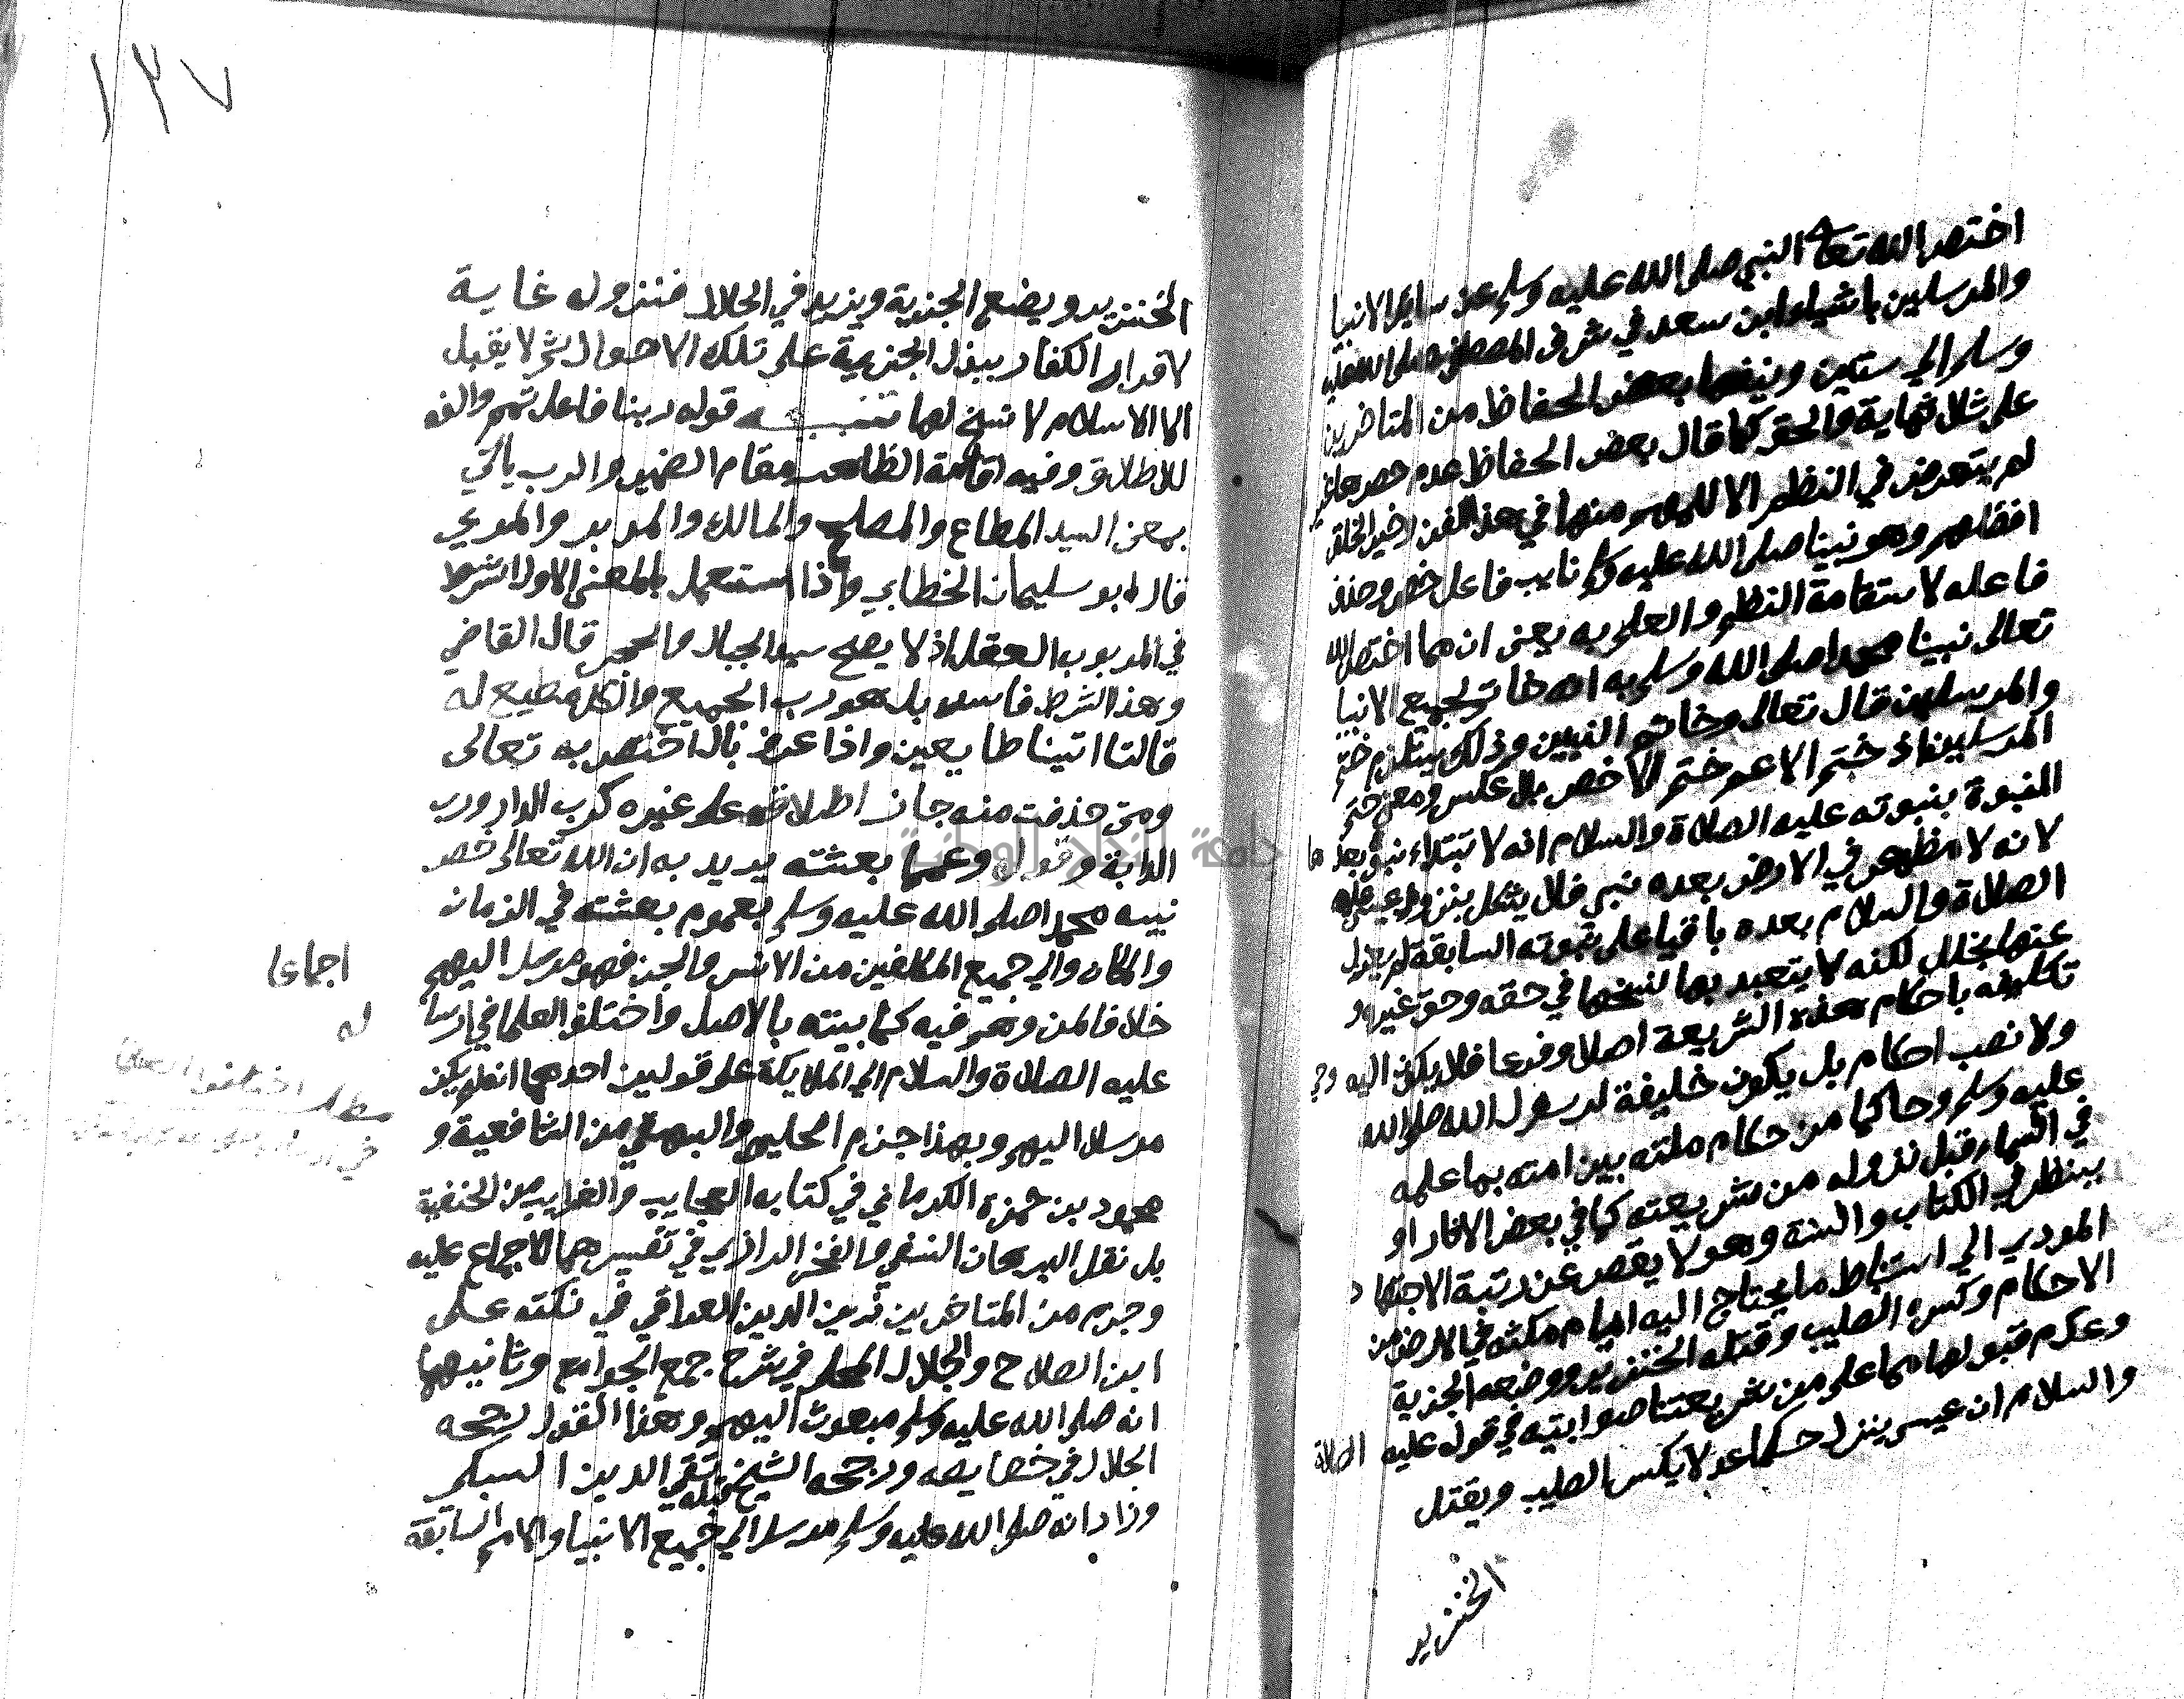 اختص الله تعالى النبي صلى الله عليه وسلم عن ساير الانبيا
والمرسلين باشيا وابن سعد في شرف المصطفى صلى الله عليه
وسلم الي ستين وينفها بعض الحفاظ من المتاخرين
على ثلاثماية والحق كما قال بعض الحفاظ عدم حصرها غير
لم يتعرض في النظم الا للمهم منها في هذا الفن لخير الخلق
افضلهم وهو نبينا صلى الله عليه وسلم نايب فاعل خص وحذف
فاعله لاستقامة النظم والعلم به يعني ان مما اختص الله
تعالى نبينا محمدا صلى الله وسلم به انه خاتم لجميع الانبيا
والمرسلين قال تعالى وخاتم النبيين وذلك يستلزم ختم
المرسلين اذ ختم الاعم ختم الاخص بلا عكس ومعنى ختم
النبوة بنبوته عليه الصلاة والسلام انه لا تبتدا نبوة بعدها
لانه لا مظهر في الارض بعده نبي فلا يشكل بنزول عيسى عليه
الصلاة والسلام بعده باقيا على نبوته السابقة لم يعزل
عنها بخلل لكنه لا يتعبد بها لنسخها في حقه وحق غيره و
تكليفه باحكام هذه الشريعة اصلا وفرعا فلا يكون اليه وحي
ولا نصب احكام بل يكون خليفة لرسول الله صلى الله
عليه وسلم وحاكما من حكام ملته بين امته بما علمه
في السما قبل نزوله من شريعته كما في بعض الاثار او
ينظر في الكتاب والسنة وهو لا يقصر عن رتبة الاجتهاد
المودي الي استنباط ما يحتاج اليه ايام مكثه في الارض من
الاحكام وكسره الصليب وقتله الخنزير ووضعه الجزية
وعدم قبولها مما علم من شريعتنا صوابيته في قوله عليه الصلاة
والسلام ان عيسى ينزل حكما عدلا يكسر الصليب ويقتل
الخنزير
١٣٧
الخنزير ويضع الجزية ويزيد في الحلال فنزوله غاية
لاقرار الكفار ببذل الجزية على تلك الاحوال ثم لا يقبل
الا الاسلام لا نسخ لها تنبيه قوله ربنا فاعل تمم والفه
للاطلاق وفيه اقامة الظاهر مقام الضمير والرب ياتي
بمعنى السيد المطاع والمصلح والمالك والمدبر والمربي
قال ابو سليمان الخطابي واذا استعمل بالمعنى الاول اشترط
في المربوب العقل اذ لا يصح سيد الجبال والحجر قال القاضي
وهذا الشرط فاسد بل هو رب الجميع والكل مطيع له
قالتا اتينا طايعين واذا عرف بال اختص به تعالى
ومتى حذفت منه جاز اطلاقه على غيره كرب الدار ورب
الدابة وقوله وعمما بعثته يريد به ان الله تعالى خص
نبيه محمدا صلى الله عليه وسلم بعموم بعثته في الزمان
والمكان والي جميع المكلفين من الانس والجن فهو مرسل اليهم
اجماعا
خلافا لمن وهم فيه كما بينته بالاصل واختلف العلما في ارسا
له
عليه الصلاة والسلام الي الملايكة على قولين احدهما انه لم يكن
مطلب اختلفوا العلما
مرسلا اليهم وبهذا جزم الحليمي والبيهقي من الشافعية و
محمود بن حمزة الكرماني في كتابه العجايب والغرايب من الحنفية
بل نقل البرهان النسفي والفخر الرازي في تفسيرهما الاجماع عليه
وجزم من المتاخرين زين الدين العراقي في نكته على
ابن الصلاح والجلال المحلي في شرح جمع الجوامع وثانيهما
انه صلى الله عليه وسلم مبعوث اليهم وهذا القول رجحه
الجلال في خصايصه ورجحه الشيخ قبله تقي الدين السبكي
وزاد انه صلى الله عليه وسلم مرسل الي جميع الانبيا والامم السابقة
جامعة النجاح الوطنية